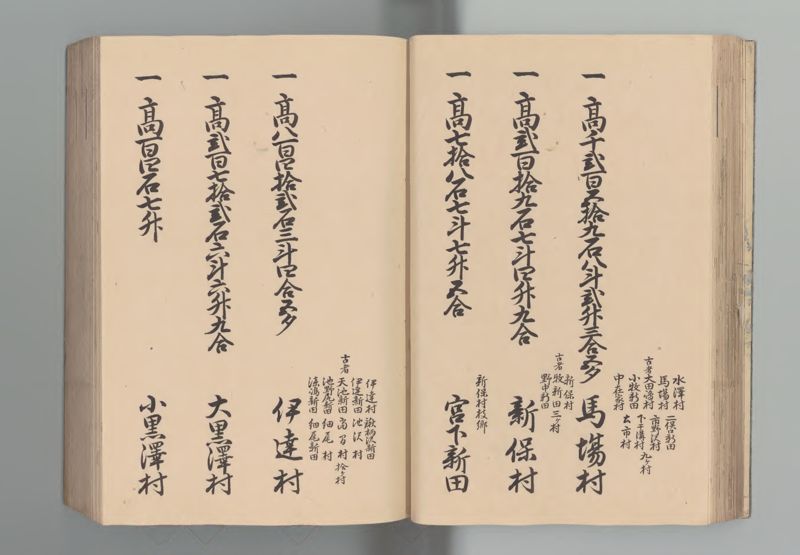 一 高千弐百五拾九石八斗弐升三合五夕 馬場村
水澤村 二俣新田
馬場村 市野沢村
古者大田嶋村 下干溝村 九ヶ村
小牧新田 太市村
中在家村
一 高弐百拾九石七斗四升九合 新保村
新保村
古者牧新田 三ヶ村
野中新田
一 高七拾八石七斗七升五合 宮下新田
新保村枝郷
一 高八百四拾弐石三斗四合五夕 伊達村
伊達村 鍬柄沢新田
伊達新田 池沢村
古者天池新田 村 拾ヶ村
池野尻新田 細尾村
新田 細尾新田
一 高弐百七拾弐石六斗六升九合 大黒澤村
一 高百四石七升 小黒澤村